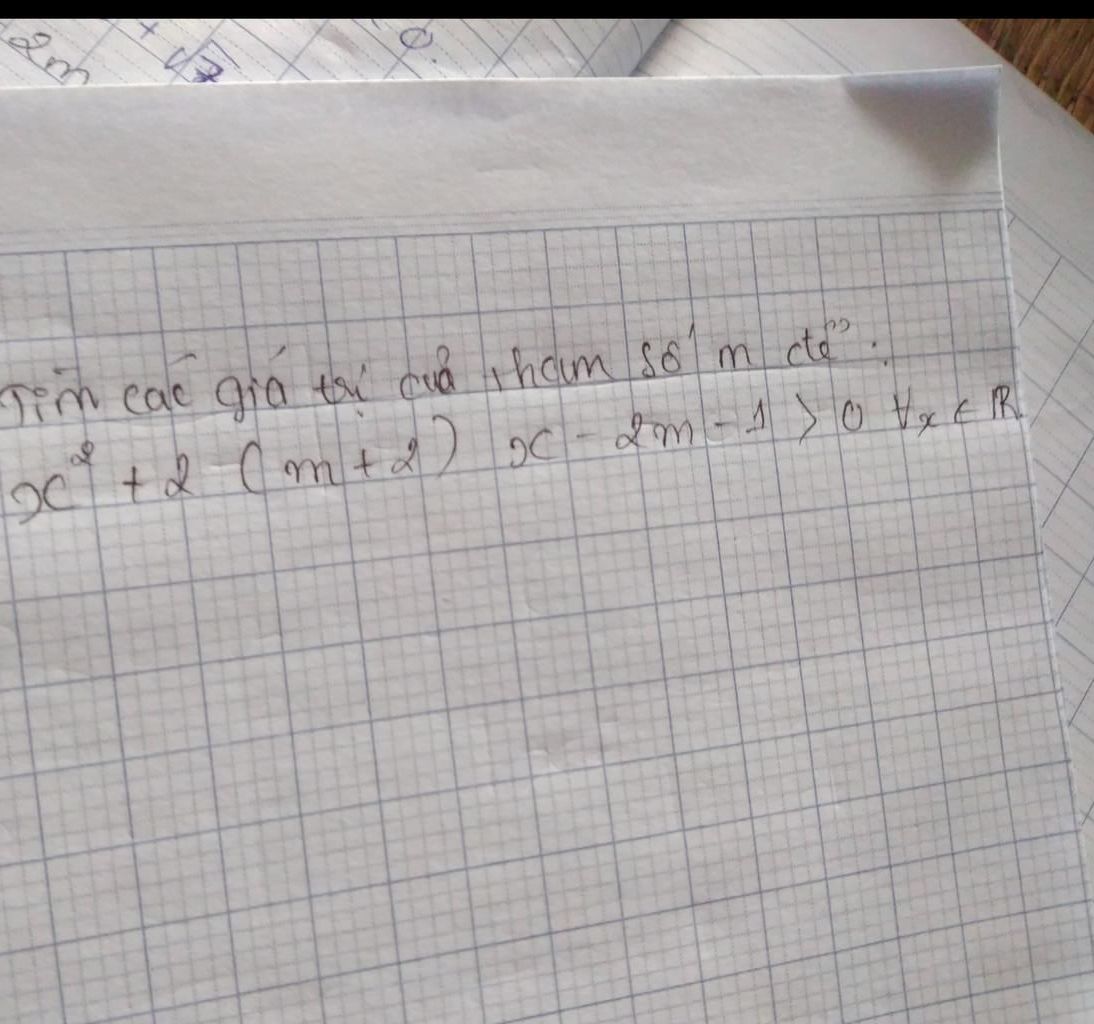 2m + √7 0
Tìm các giá trị của tham số m để :
x² + 2 (m + 2) x - 2m - 1 > 0 ∀x ∈ ℝ